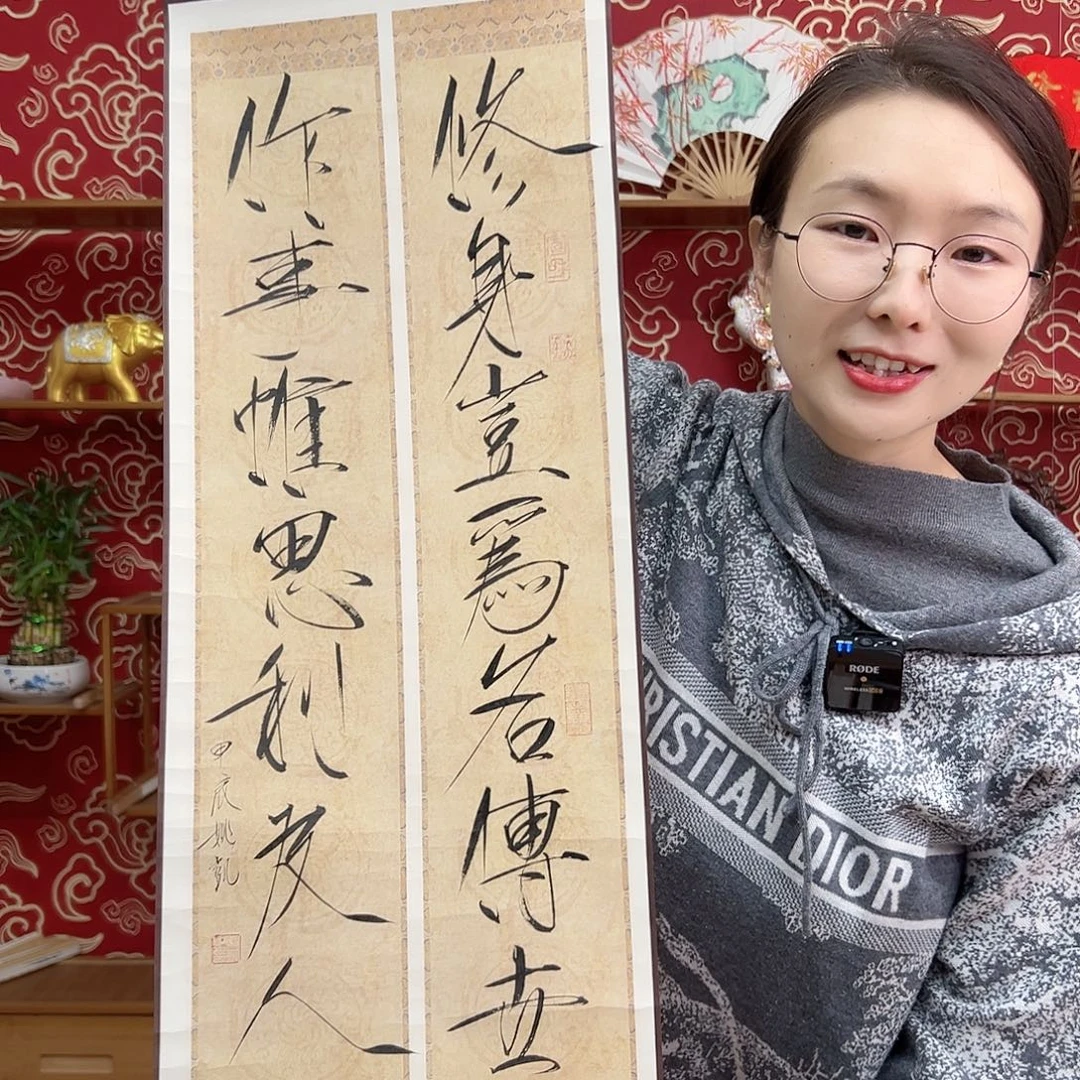 修身豈爲名傳世
作事惟思利及人
甲辰姚凱
RØDE
WIRELESS
HRISTIAN DIOR